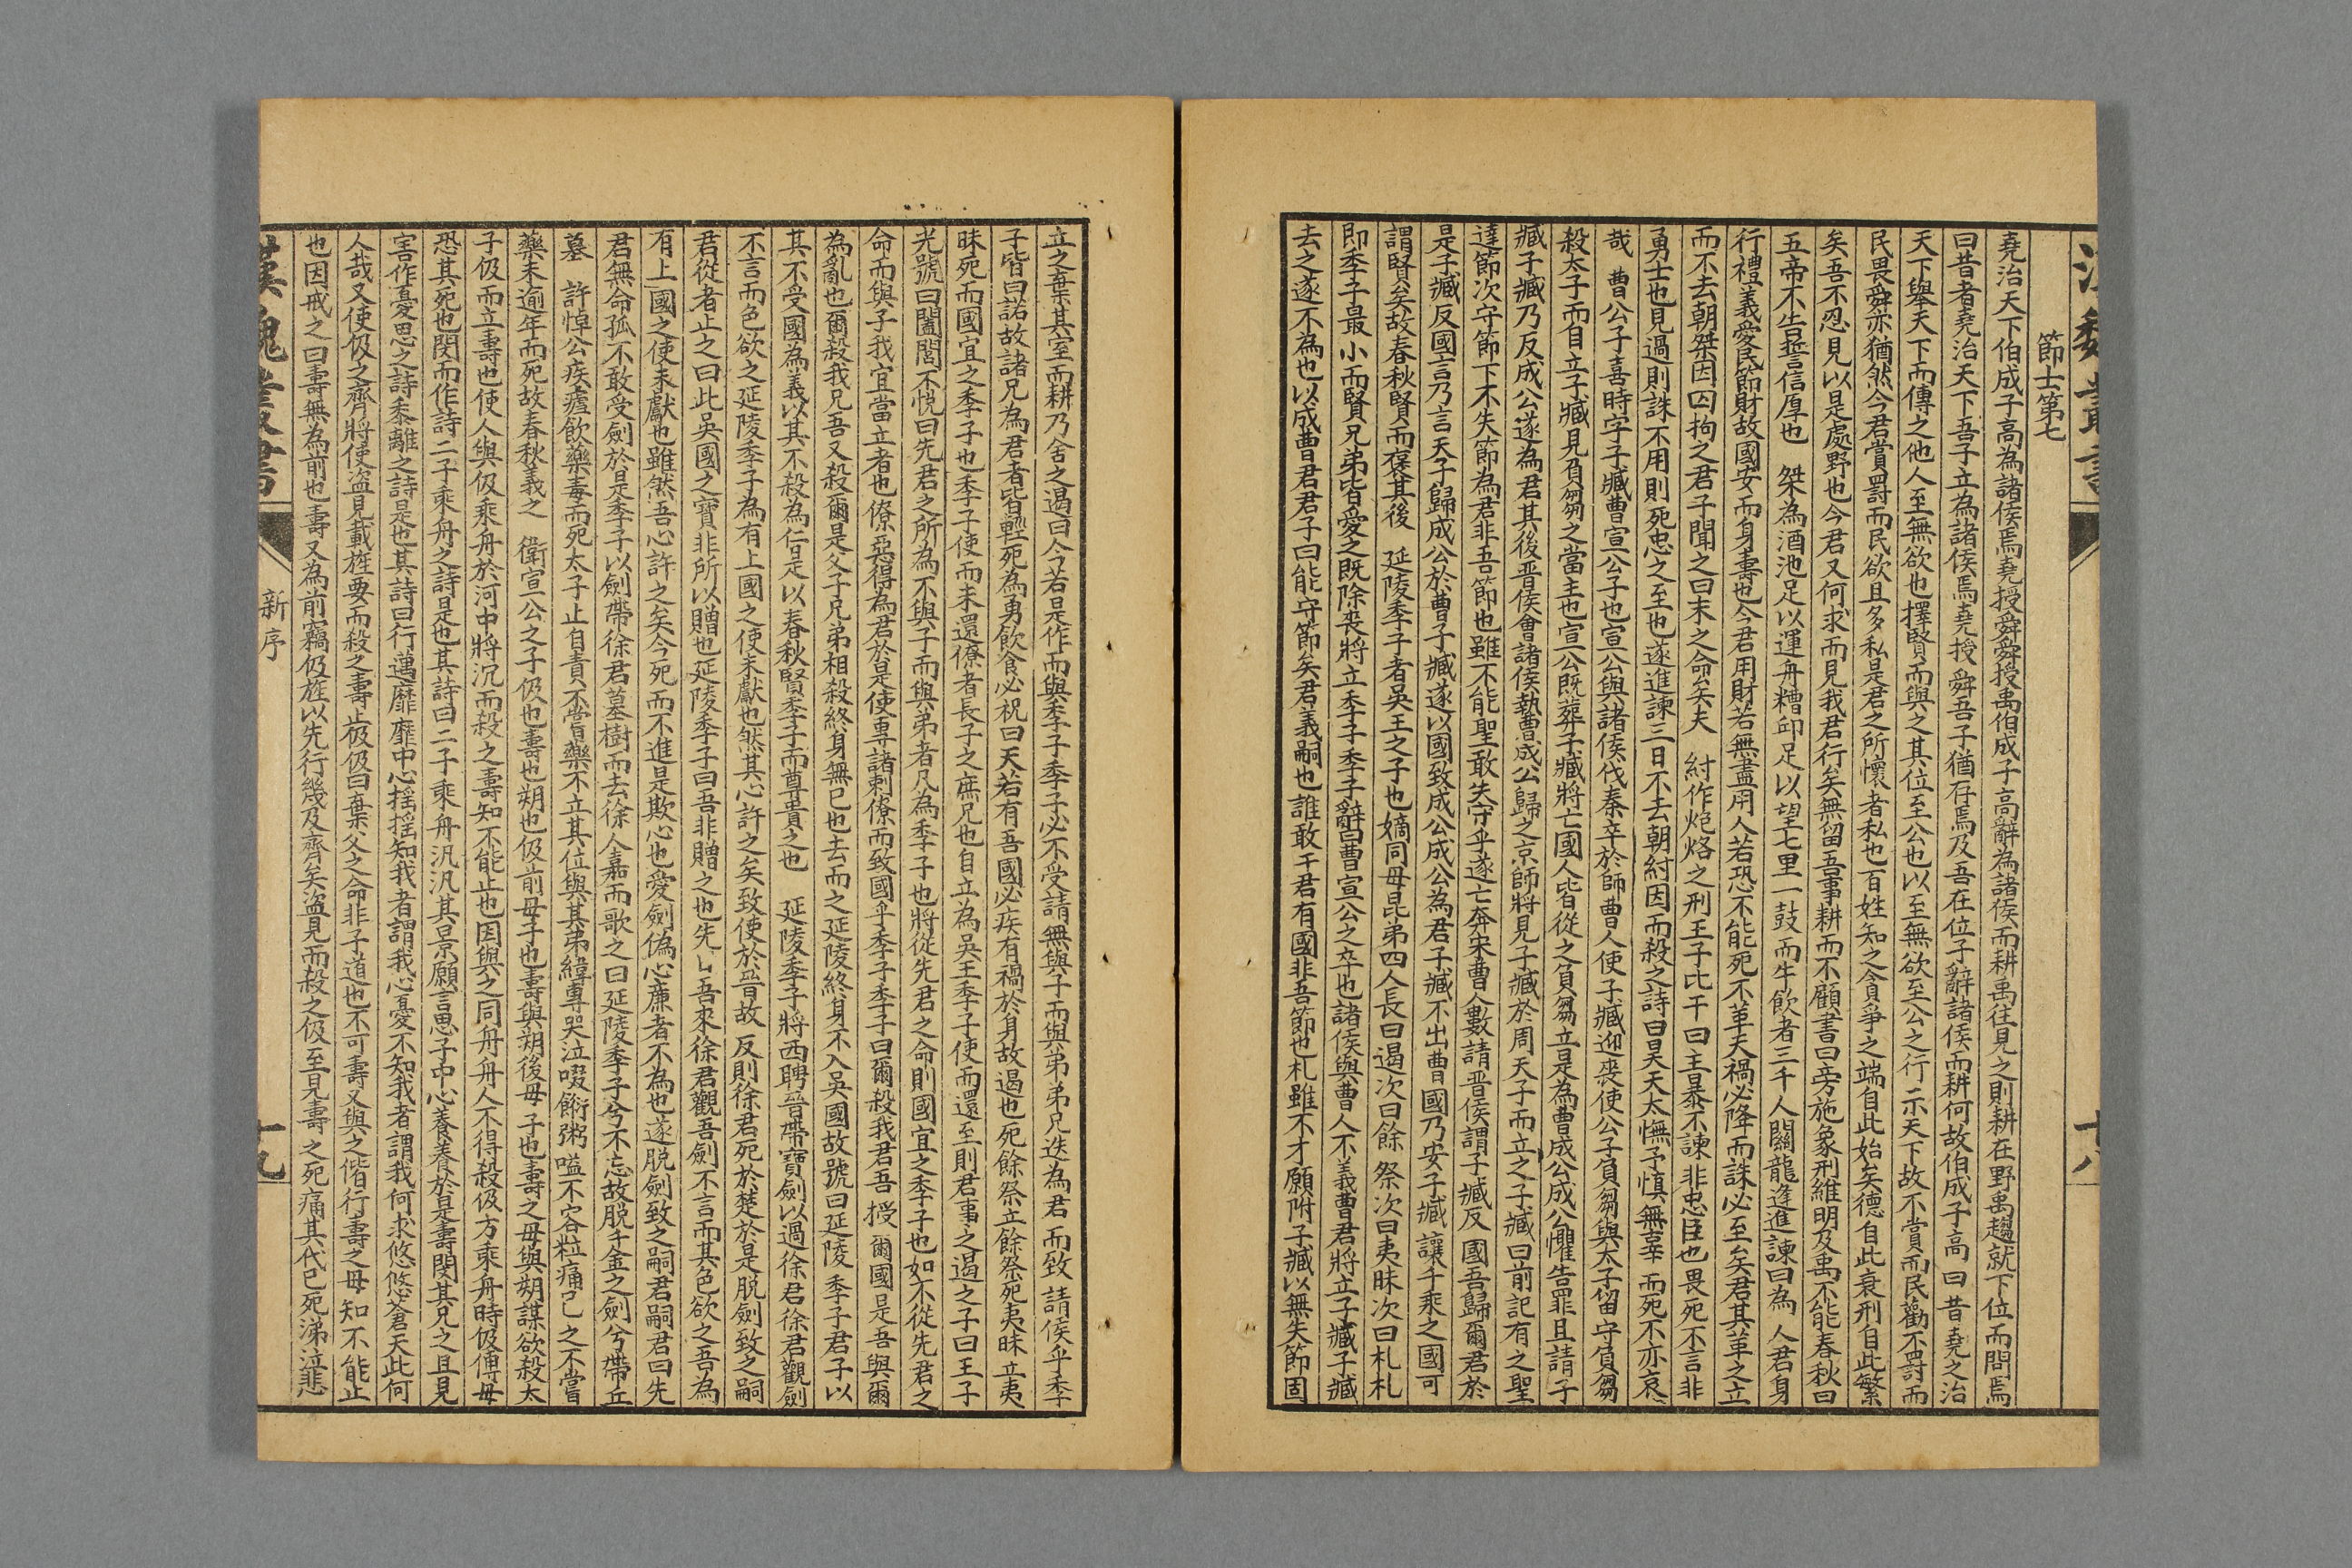 節士第七
堯治天下伯成子高為諸侯焉堯授舜舜授禹伯成子高辭為諸侯而耕禹往見之則耕在野禹趨就下位而問焉
曰昔者堯治天下吾子立為諸侯焉堯授舜吾子猶存焉及吾在位子辭諸侯而耕何故伯成子高曰昔堯之治
天下舉天下而傳之他人至無欲也擇賢而與之其位至公也以至無欲至公之行示天下故不賞而民勸不罰而
民畏舜亦猶然今君賞罰而民欲且多私是君之所懷者私也百姓知之貪爭之端自此始矣德自此衰刑自此繁
矣吾不忍見以是處野也今君又何求而見我君行矣無留吾事耕而不顧書曰旁施象刑維明及禹不能春秋曰
五帝不告誓信厚也 桀為酒池足以運舟糟邱足以望七里一鼓而牛飲者三千人關龍逢進諫曰為人君身
行禮義愛民節財故國安而身壽也今君用財若無盡用人若恐不能死不革天禍必降而誅必至矣君其革之立
而不去朝桀因囚拘之君子聞之曰末之命矣夫 紂作炮烙之刑王子比干曰主暴不諫非忠臣也畏死不言非
勇士也見過則諫不用則死忠之至也遂進諫三日不去朝紂因而殺之詩曰昊天太憮予慎無辜而死不亦哀
哉 曹公子喜時字子臧曹宣公子也宣公與諸侯伐秦卒於師曹人使子臧迎喪使公子負芻與太子留守負芻
殺太子而自立子臧見負芻之當主也宣公既葬子臧將亡國人皆從之負芻立是為曹成公成公懼告罪且請子
臧子臧乃反成公遂為君其後晉侯會諸侯執曹成公歸之京師將見子臧於周天子而立之子臧曰前記有之聖
達節次守節下不失節為君非吾節也雖不能聖敢失守乎遂亡奔宋曹人數請晉侯謂子臧反國吾歸爾君於
是子臧反國言乃言天子歸成公於曹子臧遂以國致成公成公為君子臧不出曹國乃安子臧讓千乘之國可
謂賢矣故春秋賢而褒其後 延陵季子者吳王之子也嫡同母昆弟四人長曰遏次曰餘祭次曰夷昧次曰札札
即季子最小而賢兄弟皆愛之既除喪將立季子季子辭曰曹宣公之卒也諸侯與曹人不義曹君將立子臧子臧
去之遂不為也以成曹君君子曰能守節矣君義嗣也誰敢干君有國非吾節也札雖不才願附子臧以無失節固
立之棄其室而耕乃舍之遏曰今若是作而與季子季子必不受請無與子而與弟弟兄迭為君而致請侯乎季
子皆曰諾故諸兄為君者皆輕死為勇飲食必祝曰天若有吾國必疾有禍於身故遏也死餘祭立餘祭死夷昧立夷
昧死而國宜之季子也季子使而未還僚者長子之庶兄也自立為吳王季子使而還至則君事之遏之子曰王子
光號曰闔閭不悅曰先君之所為不與子而與弟者凡為季子也將從先君之命則國宜之季子也如不從先君之
命而與子我宜當立者也僚惡得為君於是使專諸刺僚而致國乎季子季子曰爾殺我君吾授爾國是吾與爾
為亂也爾殺我兄吾又殺爾是父子兄弟相殺終身無已也去而之延陵終身不入吳國故號曰延陵季子君子以
其不受國為義以其不殺為仁是以春秋賢季子而尊貴之也 延陵季子將西聘晉帶寶劍以過徐君徐君觀劍
不言而色欲之延陵季子為有上國之使未獻也然其心許之矣致使於晉故反則徐君死於楚於是脫劍致之嗣
君從者止之曰此吳國之寶非所以贈也延陵季子曰吾非贈之也先日吾來徐君觀吾劍不言而其色欲之吾為
有上國之使未獻也雖然吾心許之矣今死而不進是欺心也愛劍偽心廉者不為也遂脫劍致之嗣君嗣君曰先
君無命孤不敢受劍於是季子以劍帶徐君墓樹而去徐人嘉而歌之曰延陵季子兮不忘故脫千金之劍兮帶丘
墓 許悼公疾瘧飲藥毒而死太子止自責不嘗藥不立其位與其弟緯專哭泣啜餰粥嗌不容粒痛己之不嘗
藥未逾年而死故春秋義之 衛宣公之子伋也壽也朔也伋前母子也壽與朔後母子也壽之母與朔謀欲殺太
子伋而立壽也使人與伋乘舟於河中將沉而殺之壽知不能止也因與之同舟舟人不得殺伋方乘舟時伋傅母
恐其死也閔而作詩二子乘舟之詩是也其詩曰二子乘舟汎汎其景願言思子中心養養於是壽閔其兄之且見
害作憂思之詩黍離之詩是也其詩曰行邁靡靡中心搖搖知我者謂我心憂不知我者謂我何求悠悠蒼天此何
人哉又使伋之齊將使盜見載旌要而殺之壽止伋伋曰棄父之命非子道也不可壽又與之偕行壽之母知不能止
也因戒之曰壽無為前也壽又為前竊伋旌以先行幾及齊矣盜見而殺之伋至見壽之死痛其代己死涕泣悲
漢魏叢書
新序
十九